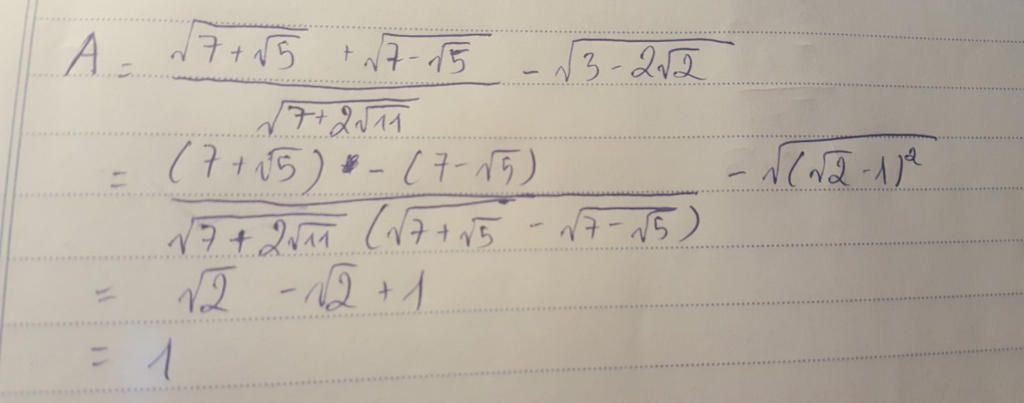 A = (√(7 + √5) + √(7 - √5)) / √(7 + 2√11) - √(3 - 2√2)
= ((7 + √5) - (7 - √5)) / (√(7 + 2√11) (√(7 + √5) - √(7 - √5))) - √((√2 - 1)²)
= √2 - √2 + 1
= 1